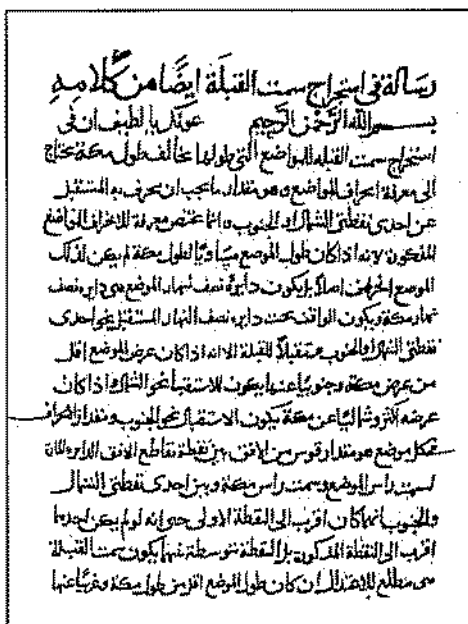 رسالة في استخراج سمت القبلة ايضا من كلامه
بسم الله الرحمن الرحيم عونك يا لطيف ان في
استخراج سمت القبله للمواضع التي طولها مخالف لطول مكة يحتاج
الى معرفة انحراف المواضع وهو مقدار ما يجب ان ينحرف به المستقبل
عن احدى نقطتي الشمال والجنوب وانما يختص معرفة الانحراف المواضع
المذكورة لانه اذا كان طول الموضع مساويا لطول مكة لم يكن لذلك
الموضع انحراف اصلا بل يكون دايرة نصف نهار الموضع هي دايرة نصف
نهار مكة ويكون الواقف تحت دايرة نصف النهار المستقبل نحو احدى
نقطتي الشمال والجنوب مستقبلا للقبلة الا انه اذا كان عرض الموضع اقل
من عرض مكة وجنوبيا عنها يكون الاستقبال نحو الشمال واذا كان
عرضه اكثر وشماليا عن مكة يكون الاستقبال نحو الجنوب ومقدار انحراف
كل موضع هو مقدار قوس من الافق بين نقطة تقاطع الافق الدايرة المارة
لسمت راس الموضع وسمت راس مكة وبين احدى نقطتي الشمال
والجنوب ايهما كان اقرب الى النقطة الاولى حتى انه لو لم يكن احديهما
اقرب الى النقطة المذكورة بل النقطة متوسطة بينهما يكون سمت القبلة
هي مطلع الاعتدال ان كان طول الموضع اقل من طول مكة وغربيا عنها